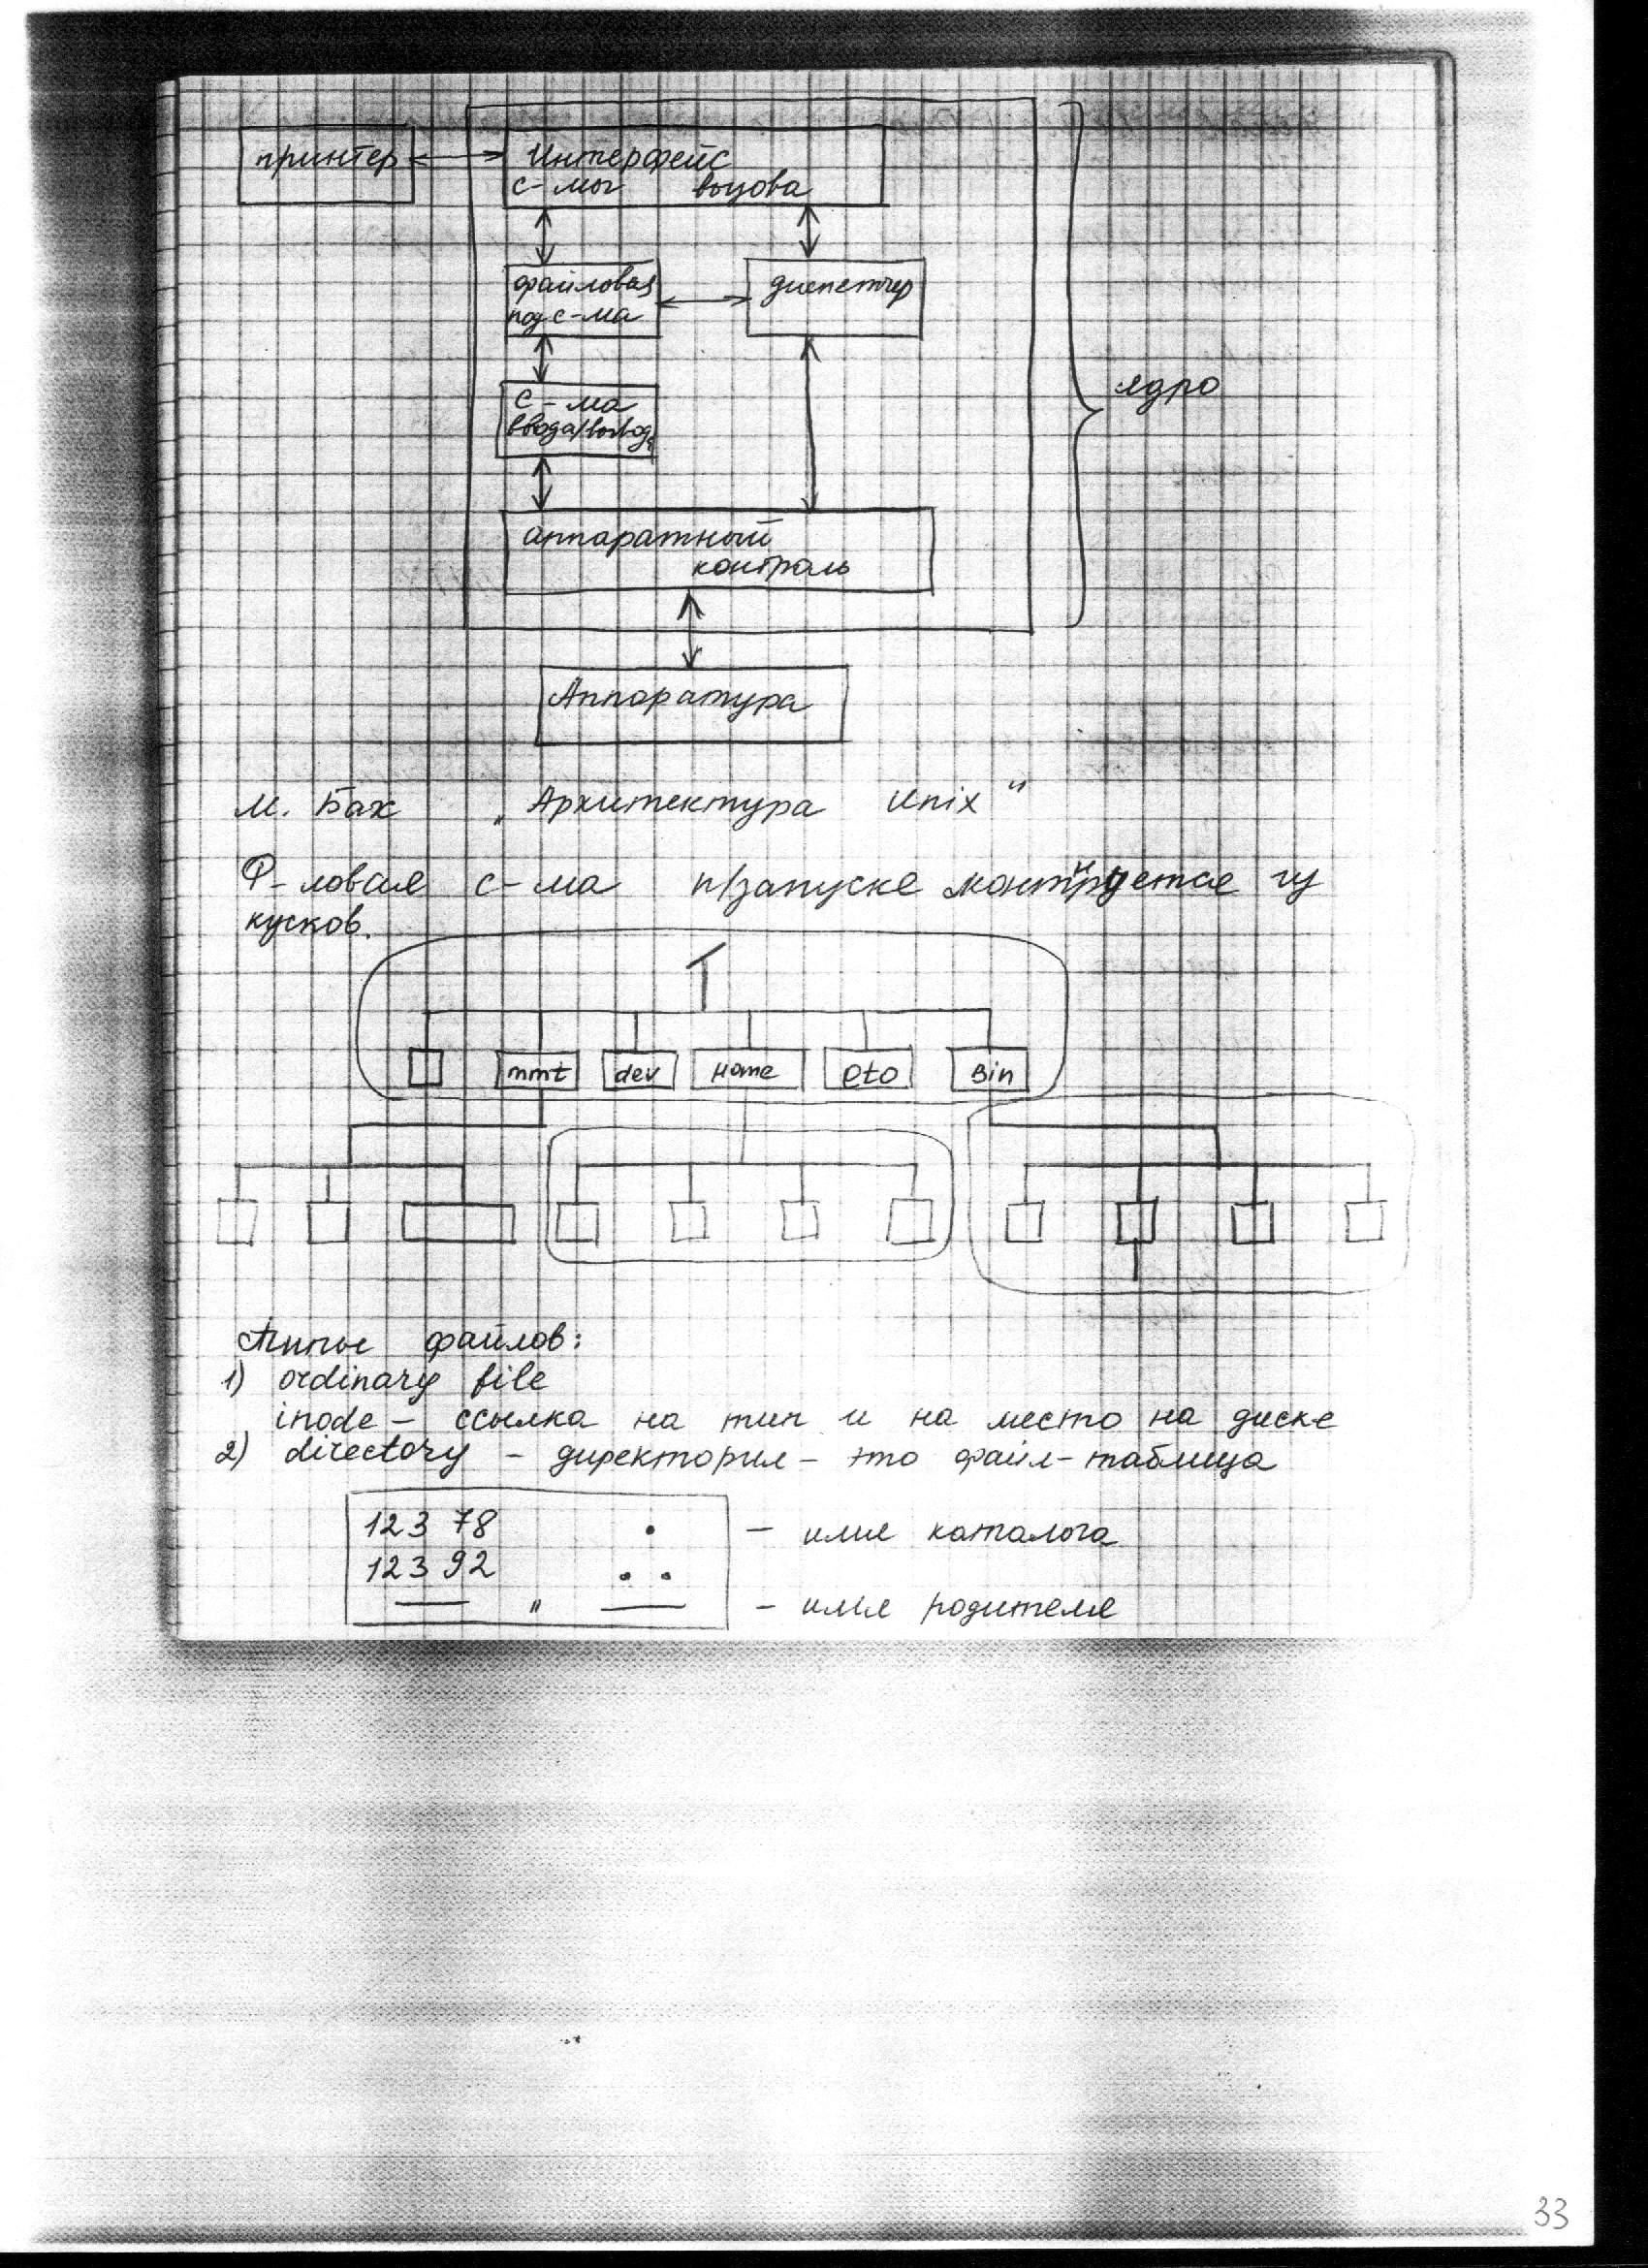 принтер
Интерфейс
с-мы вызова
файловая
подс-ма
диспетчер
с-ма
ввода/вывода
ядро
аппаратный
контроль
Аппаратура
М. Бах „Архитектура Unix"
Ф-ловая с-ма п/запуске монтируется из
кусков.
/
mmt dev Home etc Bin
Типы файлов:
1) ordinary file
inode – ссылка на тип и на место на диске
2) directory – директория – это файл-таблица
123 78 . – имя каталога
123 92 ..
— " — – имя родителя
33